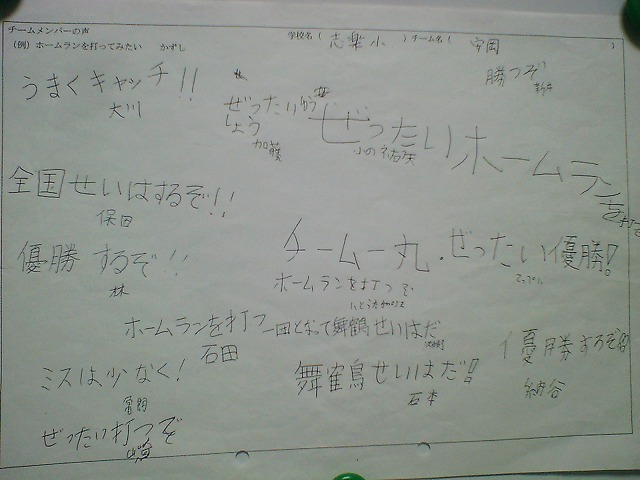 チームメンバーの声
(例)ホームランを打ってみたい かずし
学校名( 志楽小 )チーム名( 安岡 )
うまくキャッチ!!
大川
ぜったいゆう
しょう
加藤
勝つぞ
新井
ぜったいホームランを打つ
全国せいはするぞ!!
保田
優勝するぞ!!
林
チーム一丸.ぜったい優勝!
ホームランを打つぞ
ホームランを打つ
石田
一回となって舞鶴せいはだ
ミスは少なく!
舞鶴せいはだ!!
石本
優勝するぞ!!
納谷
ぜったい打つぞ